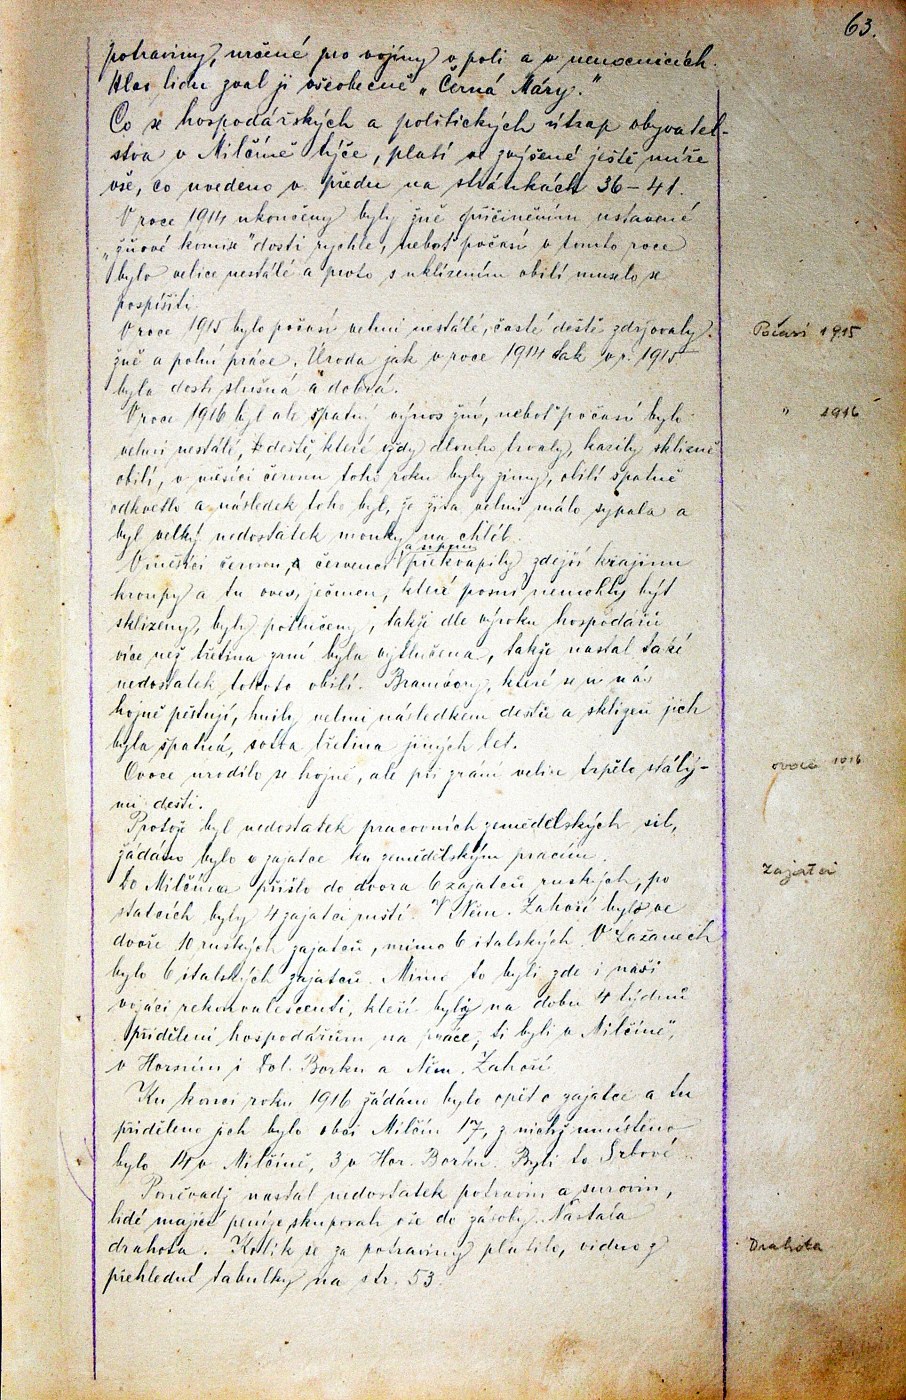 63.
potraviny, určené pro vojíny v poli a v nemocnicích.
Hlas lidu zval ji všeobecně „Černá Máry."
Co se hospodářských a politických útrap obyvatel-
stva v Milčíně týče, platí ve zvýšené ještě míře
vše, co uvedeno v předu na stránkách 36-41.
V roce 1914 ukončeny byly žně přičiněním ustavené
„žňové komise" dosti rychle, neboť počasí v tomto roce
bylo velice nestálé a proto s uklízením obilí muselo se
pospíšiti.
V roce 1915 bylo počasí velmi nestálé, časté deště zdržovaly
Počasí 1915
žně a polní práce. Úroda jak v roce 1914 tak v r. 1915
byla dosti slušná a dobrá.
V roce 1916 byl ale špatný výnos žní, neboť počasí bylo
" 1916
velmi nestálé, deště, které vždy dlouho trvaly, kazily sklizně
obilí, v měsíci červnu toho roku byly zimy, obilí špatně
odkvetlo a následek toho byl, že žita velmi málo sypala a
byl velký nedostatek mouky na chléb.
V měsíci červnu, červenci a srpnu překvapily zdejší krajinu
kroupy a tu oves, ječmen, které posud nemohly být
sklizeny, byly potlučeny, takže dle výroku hospodářů
více než třetina zrní byla vytlučena, takže nastal také
nedostatek tohoto obilí. Brambory, které se u nás
hojně pěstují, hnily velmi následkem deště a sklizeň jich
byla špatná, sotva třetina jiných let.
Ovoce urodilo se hojně, ale při zrání velice trpělo stálý-
ovoce 1916
mi dešti.
Protože byl nedostatek pracovních zemědělských sil,
žádáno bylo o zajatce ku zemědělským pracím.
Do Milčína přišlo do dvora 6 zajatců ruských, po
Zajatci
statcích byly 4 zajatci ruští. V Něm. Zahoří bylo ve
dvoře 10 ruských zajatců, mimo 6 italských. V Zažanech
bylo 6 italských zajatců. Mimo to byli zde i naši
vojáci rekonvalescenti, kteří byly na dobu 4 týdnů
přiděleni hospodářům na práce, ti byli v Milčíně,
v Horním i Dol. Borku a Něm. Zahoří.
Ku konci roku 1916 žádáno bylo opět o zajatce a tu
přiděleno jich bylo obci Milčín 17, z nichž umístěno
bylo 14 v Milčíně, 3 v Hor. Borku. Byli to Srbové.
Poněvadž nastal nedostatek potravin a surovin,
lidé mající peníze skupovali vše do zásoby. Nastala
drahota. Kolik se za potraviny platilo, vidno z
Drahota
přehledné tabulky na str. 53.